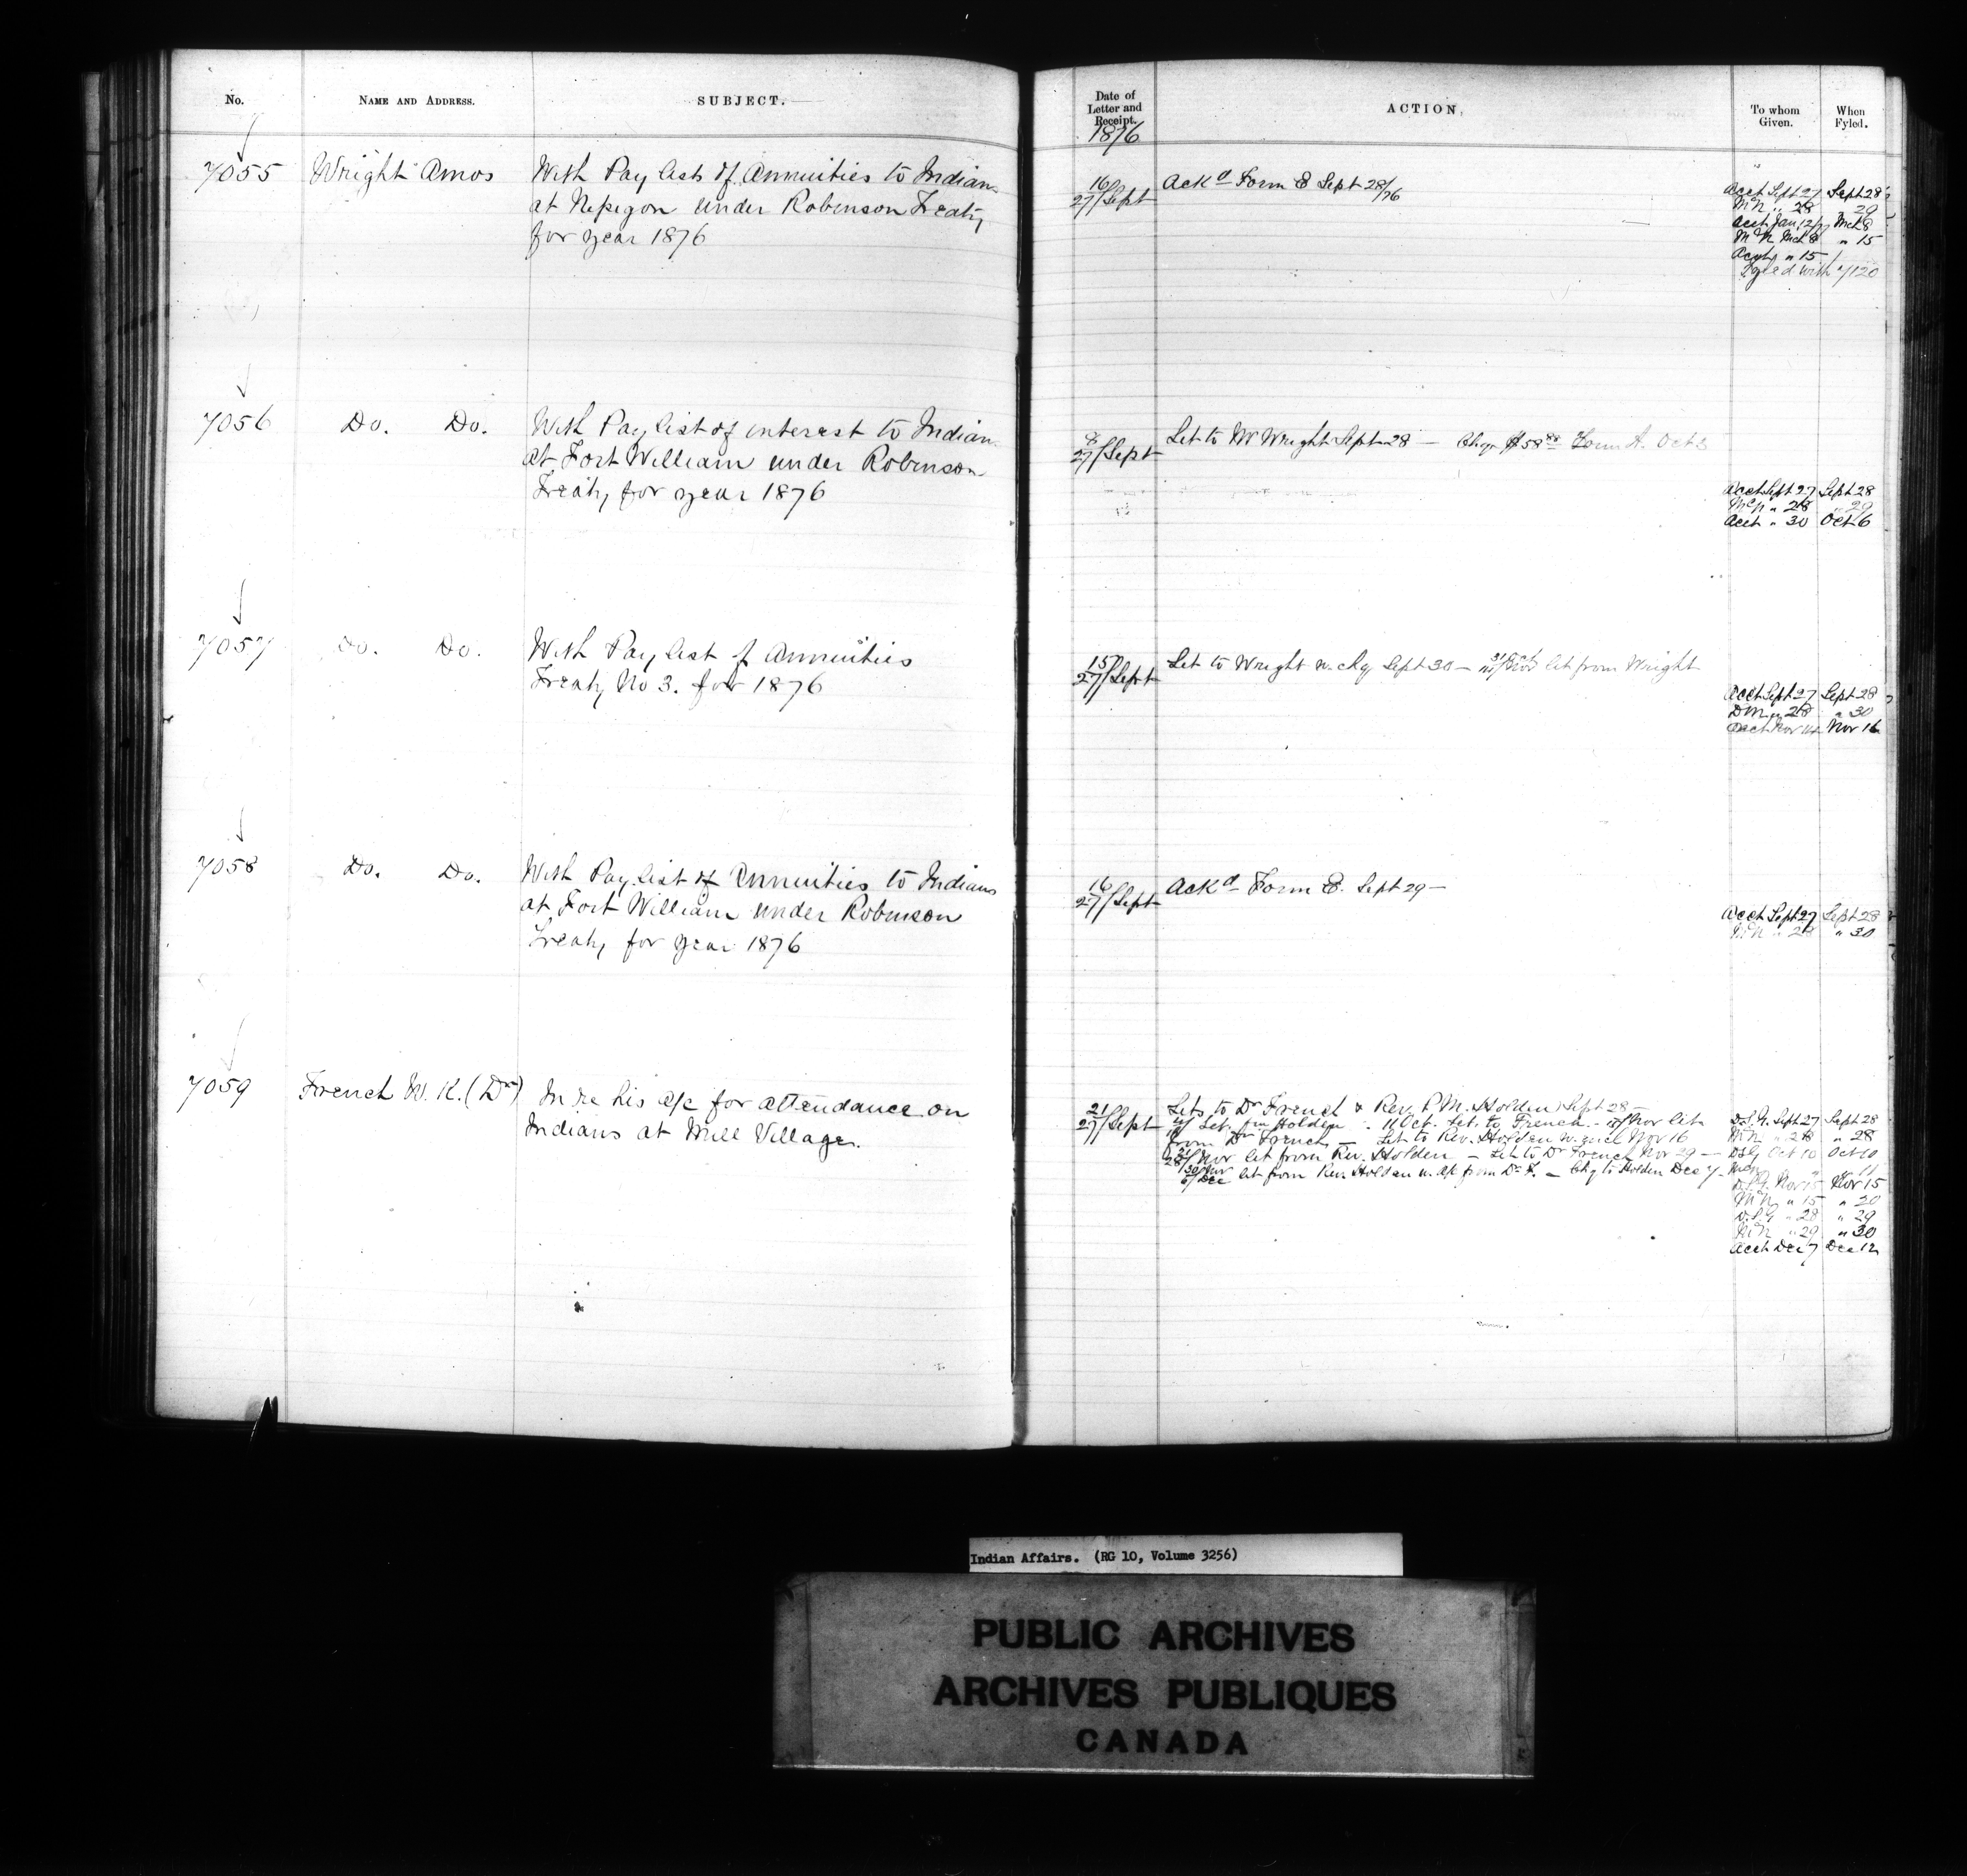 No. NAME AND ADDRESS. SUBJECT.
Date of Letter and Receipt. ACTION. To whom Given. When Fyled.
1876
7055 Wright Amos With Pay lists of Annuities to Indians
at Nepigon under Robinson Treaty
for year 1876
16/27 Sept Ackd Form E Sept 28/76
Acct Sept 27 Sept 28
McN " 28 " 29
Acct Jan 12/77 Mch 8
McN Mch 8 " 15
Acct " 15
Fyled with 7120
7056 Do. Do. With Pay list of interest to Indians
at Fort William under Robinson
Treaty for year 1876
8/27 Sept Let to W Wright Sept 28 — $58 Form A. Oct 3
Acct Sept 27 Sept 28
McN " 28 " 29
Acct " 30 Oct 6
7057 Do. Do. With Pay list of Annuities
Treaty No 3. for 1876
15/27 Sept Let to Wright w. chq Sept 30 — let from Wright
Acct Sept 27 Sept 28
DM " 28 " 30
Acct Nov 14 Nov 16
7058 Do. Do. With Pay list of Annuities to Indians
at Fort William under Robinson
Treaty for year 1876
16/27 Sept Ackd Form E. Sept 29 —
Acct Sept 27 Sept 28
McN " 28 " 30
7059 French W. K. (Dr) In re his a/c for attendance on
Indians at Mill Village.
21/27 Sept Lets to Dr French & Rev. P. M. Holden Sept 28 —
Let. fm Holden . 11 Oct. Let. to French — 15/Nov let
from Dr French — Let to Rev. Holden w. encl Nov 16
Nov let from Rev. Holden — Let to Dr French Nov 29 —
30 Nov/6 Dec let from Rev. Holden w. a/c from Dr F. — Chq to Holden Dec 7.
D.S.G. Sept 27 Sept 28
McN " 28 " 28
DSG Oct 10 Oct 10
McN " " 11
D.S.G. Nov 15 Nov 15
McN " 15 " 20
D.S.G " 28 " 29
McN " 29 " 30
Acct Dec 7 Dec 12
Indian Affairs. (RG 10, Volume 3256)
PUBLIC ARCHIVES
ARCHIVES PUBLIQUES
CANADA